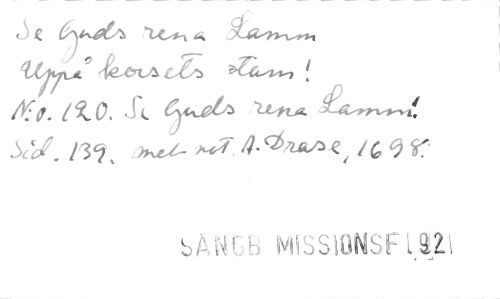 Se Guds rena Lamm
Uppå korsets stam!
N:o. 120. Se Guds rena Lamm!
Sid. 139. met not. A. Drase, 1698.
SÅNGB MISSIONSF 1921